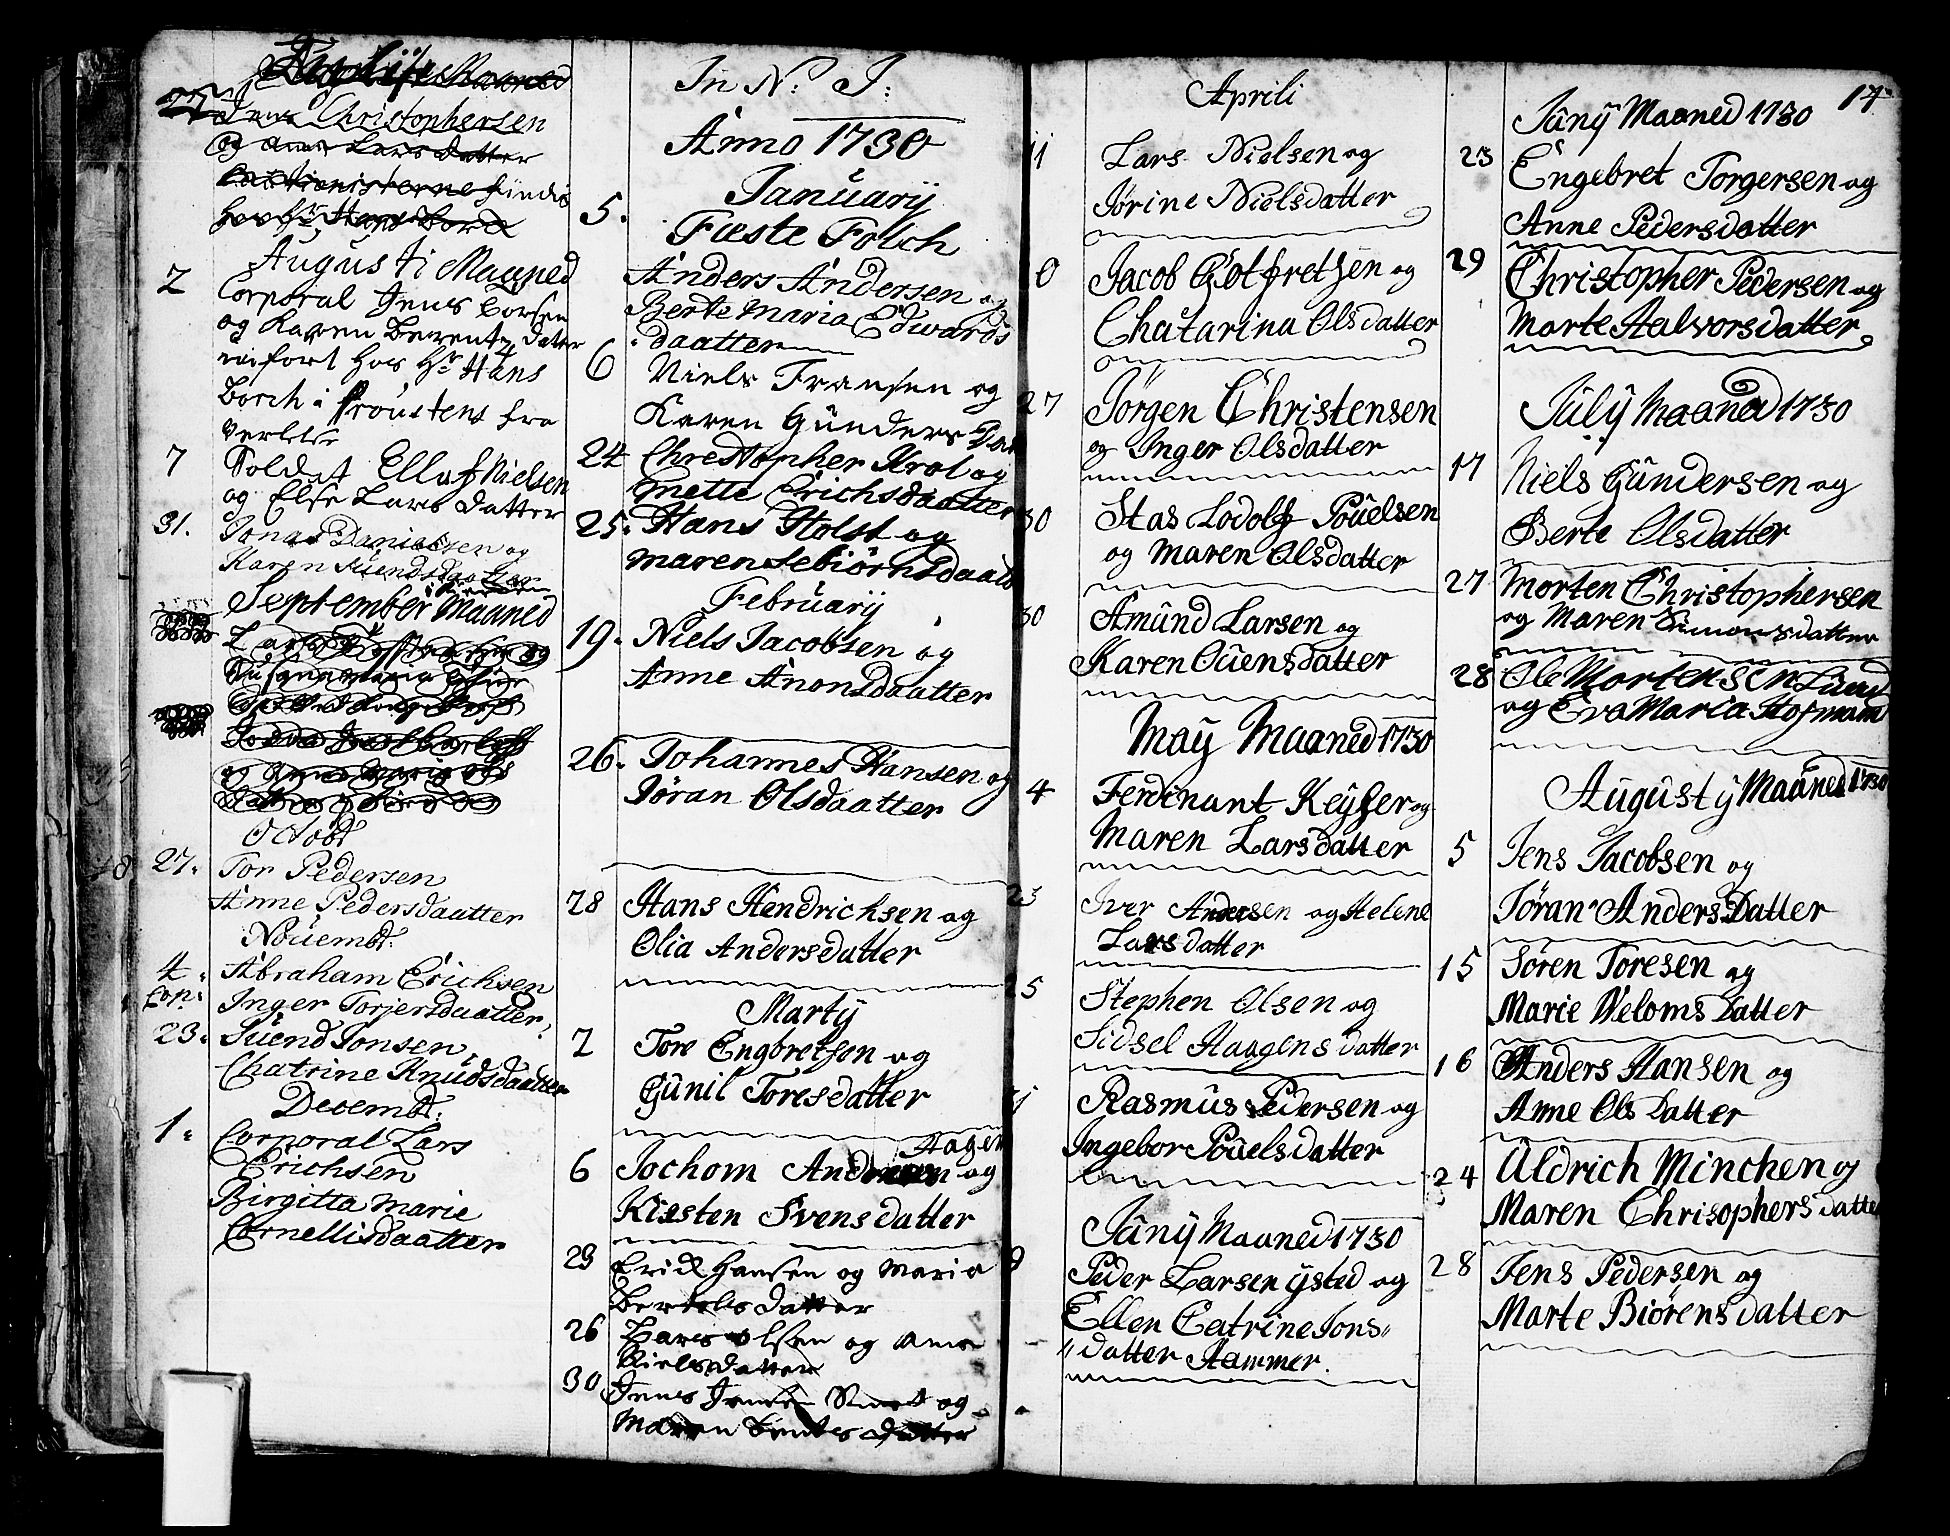 27 Jens Christophersen
og Anne Lars datter
Augusti Maaned
2 Corporal Jens Corsen
og Karen Berents datter
hos Hr Hans
Borch i
7 Soldat Ellaf Nielsen
og Else Lars datter
31. Jonas Danielsen og
Karen Suendsdaatter
September Maaned
Octobr
27. Tor Pedersen
Anne Pedersdaatter
Nouembr.
4. Abraham Erichsen
Cop. Inger Torjersdaatter
23. Suend Jonsen
Chatrine Knudsdaatter
Decembr.
1. Corporal Lars
Erichsen
Birgitta Marie
Cornellisdaatter
In N. J:
Anno 1730
Januarij
5. Fæste Folch
Anders Andersen og
Berte Maria Edwards
daatter
6 Niels Fransen og
Karen Gunders Dat
24 Chrestopher Krol og
Mette Erichsdaatter
25. Hans Holst og
Maren Sebiørnsdaat
Februarij
19. Niels Jacobsen og
Anne Anonsdaatter
26. Johannes Hansen og
Jøran Olsdaatter
28 Hans Hendrichsen og
Olia Andersdatter
Martij
2 Tore Engbretsen og
Gunil Toresdatter
Hagen
6 Jochom og
Kirsten Svensdatter
29 Erick Hansen og Maria
Bertels datter
26 Lars Olsen og Anne
Nielsdatter
30 Jens Jensen og
Maren Bentes datter
14
Aprili
11 Lars Nielsen og
Jørine Nielsdatter
0 Jacob Gotfretsen og
Chatarina Olsdatter
27 Jørgen Christensen
og Inger Olsdatter
30 Stas Lodolf Pouelsen
og Maren Olsdatter
30 Amund Larsen og
Karen Ouensdatter
May Maaned 1730
4 Ferdinant Keyser og
Maren Larsdatter
23 Iver Andersen og Helene
Larsdatter
25 Stephen Olsen og
Sidsel Haagensdatter
31 Rasmus Pedersen og
Ingebor Pouelsdatter
Junij Maaned 1730
9 Peder Larsen Ysted og
Ellen Catrine Jons„
„datter Hammer.
Junij Maaned 1730
23 Engebret Torgersen og
Anne Pedersdatter
29 Christopher Pedersen og
Marte Halvorsdatter
Julij Maaned 1730
17 Niels Gundersen og
Berte Olsdatter
27 Morten Christophersen
og Maren Simonsdatter
28 Ole Mortensen Lund
og Eva Maria Hofmand
Augustij Maaned 1730
5 Jens Jacobsen og
Jøran Anders Datter
15 Søren Toresen og
Marie Veloms Datter
16 Anders Hansen og
Anne Ols Datter
24 Uldrich Minchen og
Maren Chrisophersdatter
28 Jens Pedersen og
Marte Biørensdatter